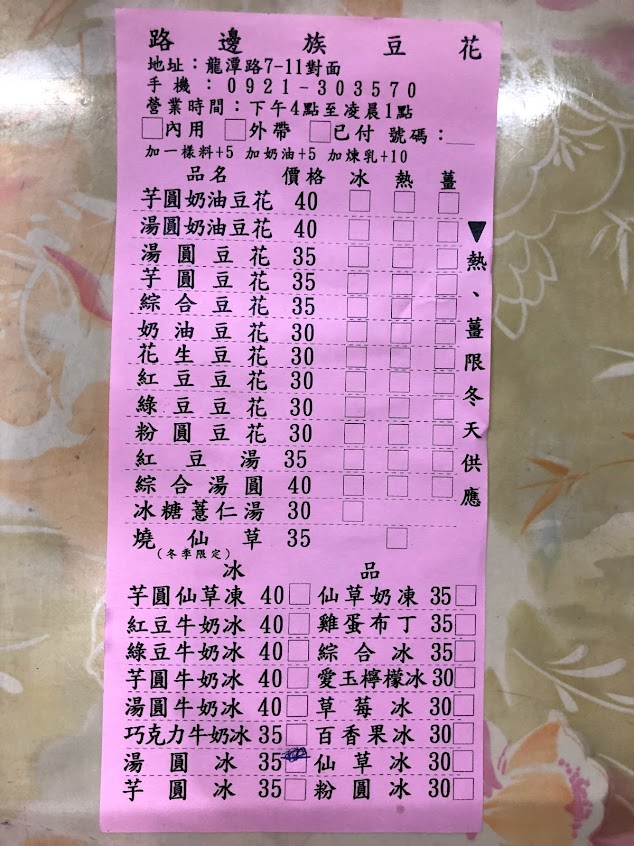 路邊族豆花
地址：龍潭路7-11對面
手機：0921-303570
營業時間：下午4點至凌晨1點
□內用 □外帶 □已付 號碼：__
加一樣料+5 加奶油+5 加煉乳+10
品名 價格 冰 熱 薑
芋圓奶油豆花 40 □ □ □
湯圓奶油豆花 40 □ □ □
湯圓豆花 35 □ □ □
芋圓豆花 35 □ □ □
綜合豆花 35 □ □ □
奶油豆花 30 □ □ □
花生豆花 30 □ □ □
紅豆豆花 30 □ □ □
綠豆豆花 30 □ □ □
粉圓豆花 30 □ □ □
紅豆湯 35 □ □ □
綜合湯圓 40 □ □ □
冰糖薏仁湯 30 □
燒仙草 35 □
(冬季限定)
▼熱、薑限冬天供應
冰品
芋圓仙草凍 40□ 仙草奶凍 35□
紅豆牛奶冰 40□ 雞蛋布丁 35□
綠豆牛奶冰 40□ 綜合冰 35□
芋圓牛奶冰 40□ 愛玉檸檬冰 30□
湯圓牛奶冰 40□ 草莓冰 30□
巧克力牛奶冰 35□ 百香果冰 30□
湯圓冰 35□ 仙草冰 30□
芋圓冰 35□ 粉圓冰 30□